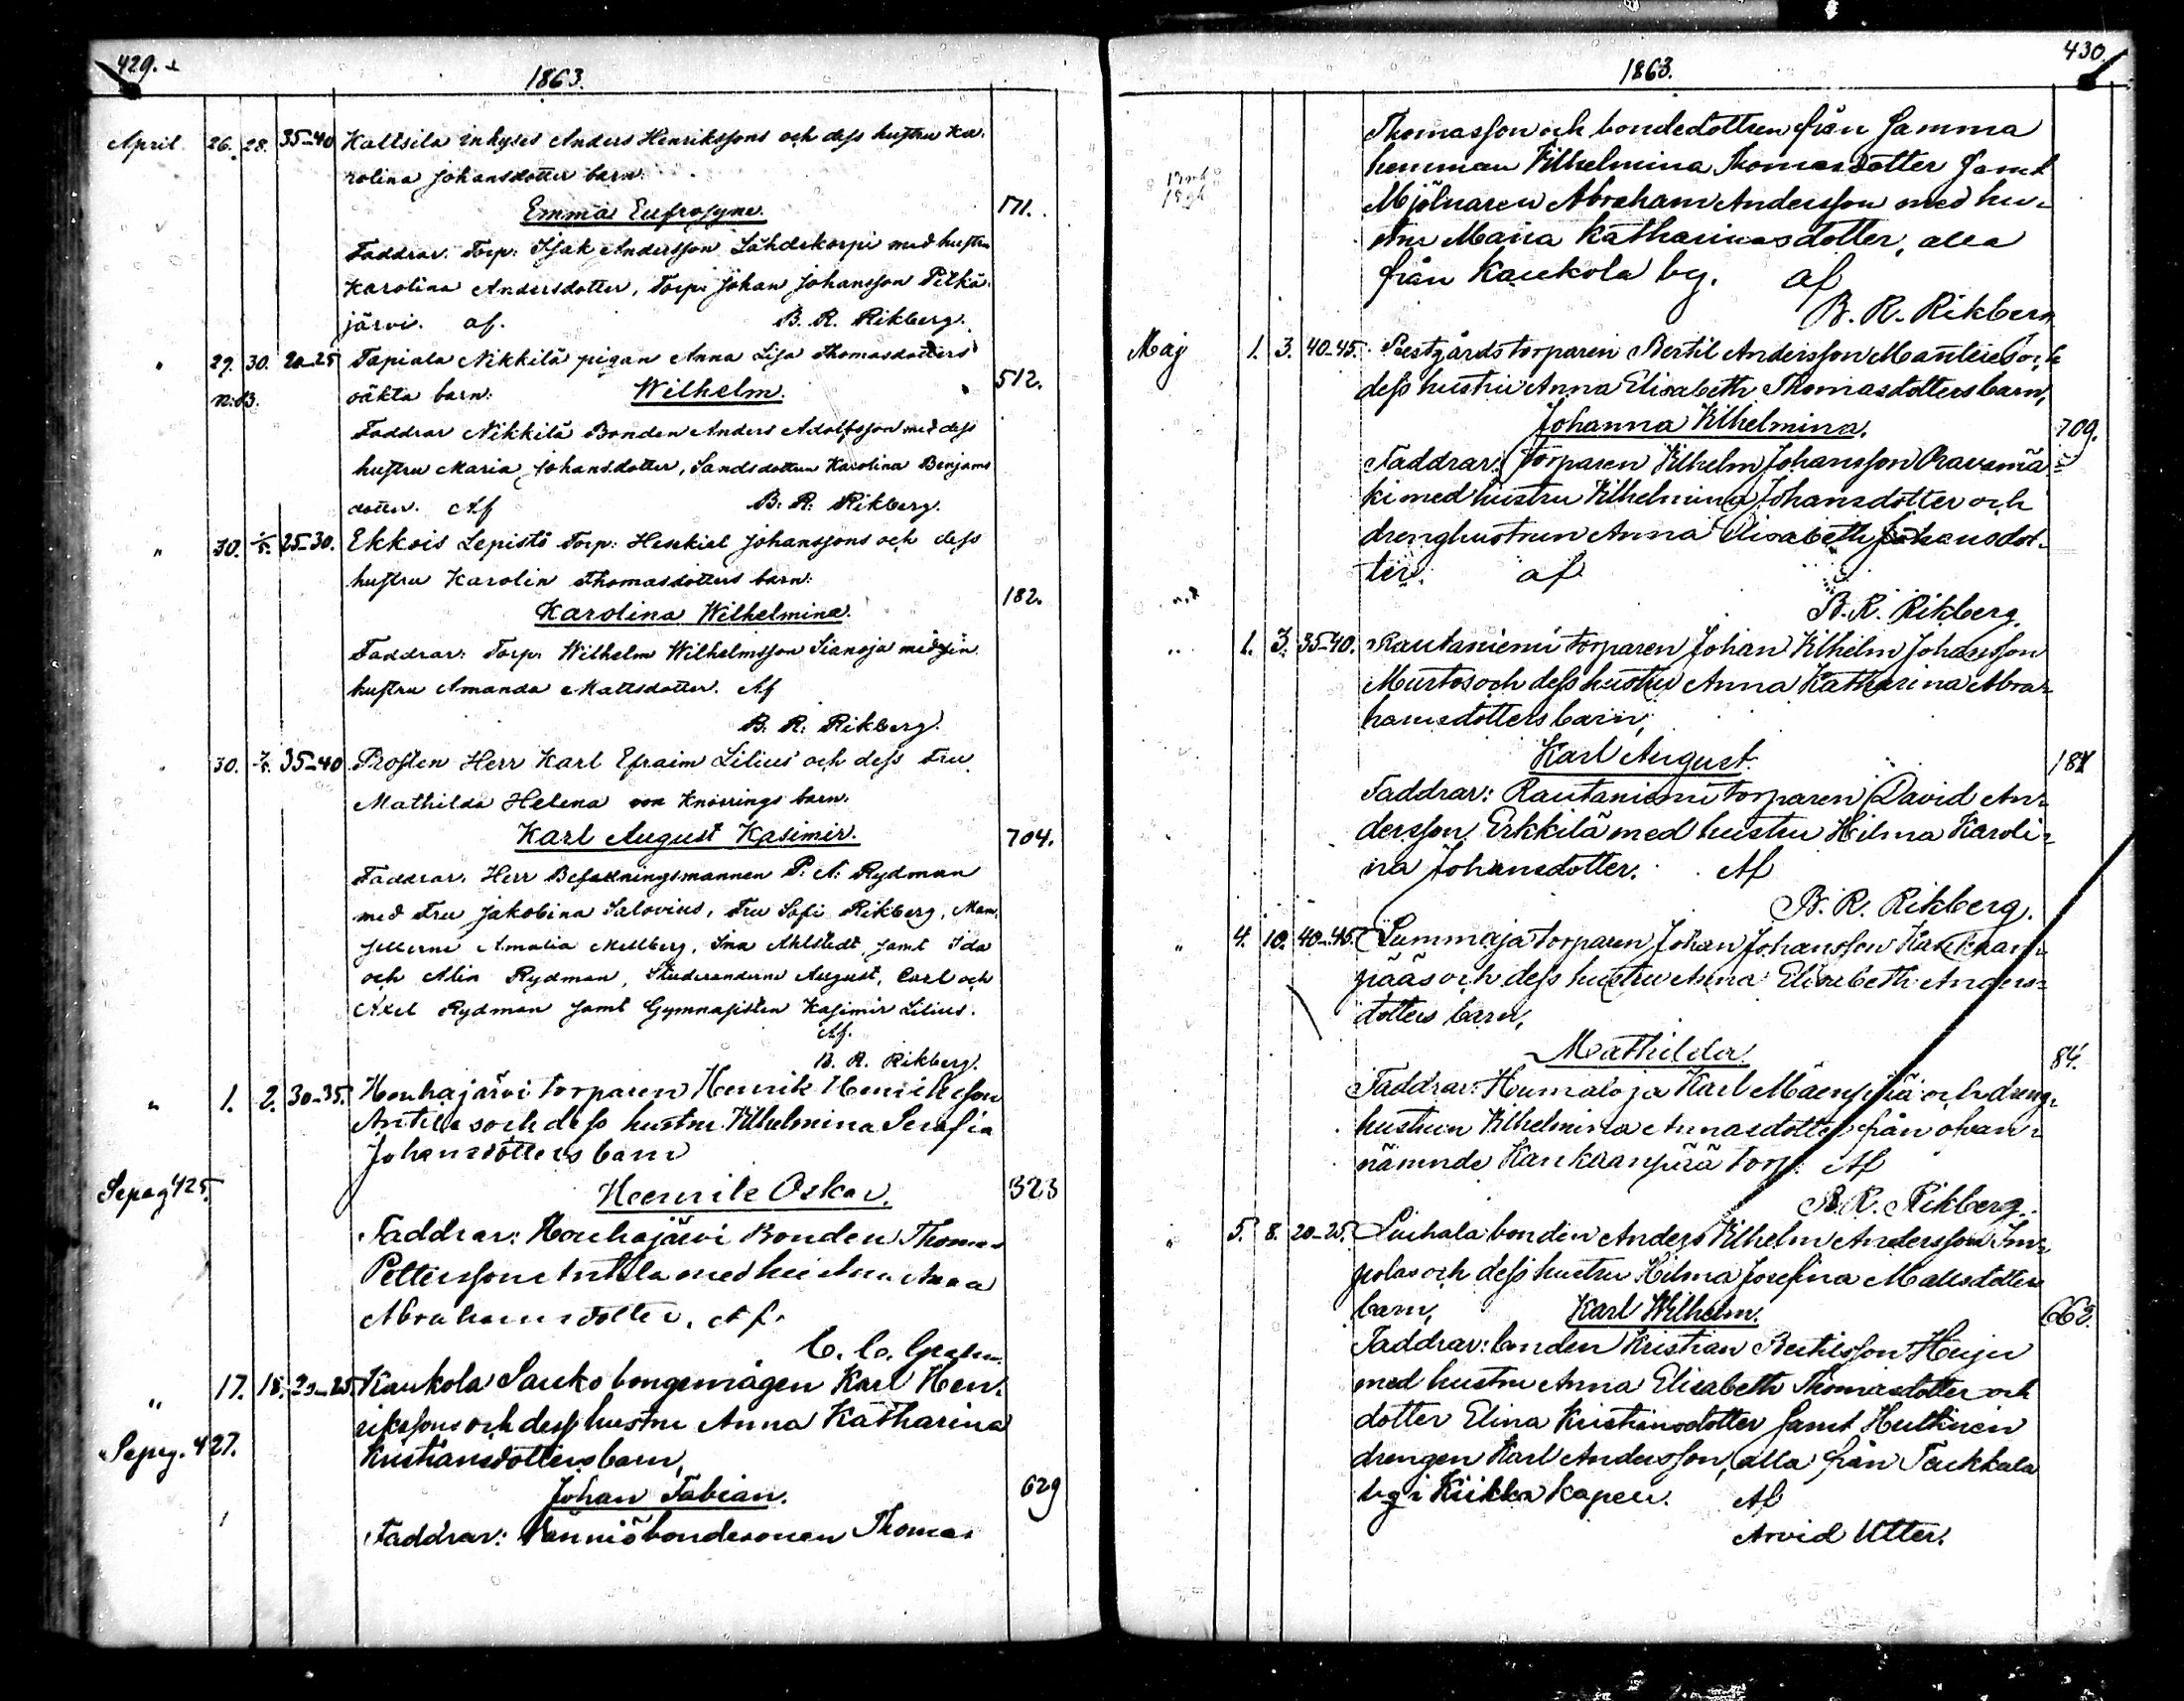 429.
1863.
April 26. 28. 35-40 Kaltsila inhyses Anders Henrikssons och dess hustru Ka-
rolina Johansdotter barn:
Emma Eufrosyne. 171.
Faddrar: Torp: Isak Andersson Lähdekorpi med hustru
Karolina Andersdotter, Torp: Johan Johansson Pitkä-
järvi. af. B. R. Rikberg.
29. 30. 20-25 Tapiala Nikkilä pigan Anna Lisa Thomasdotters
N:B. oäkta barn: Wilhelm. 512.
Faddrar Nikkilä Bonden Anders Adolfsson med dess
hustru Maria Johansdotter, Landsdottern Karolina Benjams
dotter. Af B. R. Rikberg.
" 30. 2/5. 25-30. Ekkois Lepistö Torp: Heskiel Johanssons och dess
hustru Karolin Thomasdotters barn:
Karolina Wilhelmina. 182.
Faddrar: Torp. Wilhelm Wilhelmsson Sianoja med sin
hustru Amanda Mattsdotter. Af
B. R. Rikberg.
30. 2/5. 35-40 Prosten Herr Karl Efraim Lilius och dess Fru
Mathilda Helena von Knorrings barn:
Karl August Kasimir. 704.
Faddrar: Herr Befallningsmannen P. A. Rydman
med Fru Jakobina Salovius, Fru Sofi Rikberg, Mam-
sellerne Amalia Mellberg, Ina Ahlstedt, samt Ida
och Alin Rydman, Studeranderne August, Carl och
Axel Rydman samt Gymnasisten Kasimir Lilius.
Af.
B. R. Rikberg.
" 1. 2. 30-35. Houhajärvi torparen Henrik Henriksson
Antilas och dess hustru Wilhelmina Serafia
Johansdotters barn
Se pag 425. Henrik Oskar. 323
Faddrar: Houhajärvi Bonden Thomas
Pettersson Anttila med hustru Anna
Abrahamsdotter. Af.
C. C.
" 17. 18. 20-25 Kaukola Sauko bongemågen Karl Hen-
rikssons och dess hustru Anna Katharina
Se pag. 427. Kristiansdotters barn,
Johan Fabian. 629
Faddrar: Vänniö bondesonen Thomas
430.
1863.
Thomasson och bondedottren från samma
hemman Wilhelmina Thomasdotter samt
Mjölnaren Abraham Andersson med hu-
stru Maria Katharinasdotter, alla
från Kaukola by. af
B. R. Rikberg
Maj 1. 3. 40-45. Prestgårds torparen Bertil Andersson Manteres och
dess hustru Anna Elisabeth Thomasdotters barn,
Johanna Wilhelmina. 709.
Faddrar: torparen Wilhelm Johansson Oravamä-
ki med hustru Wilhelmina Johansdotter och
drenghustrun Anna Elisabeth Johansdot-
ter. af
B. R. Rikberg.
" 1. 3. 35-40. Rautaniemi torparen Johan Wilhelm Johansson
Murtos och dess hustru Anna Katharina Abra-
hamsdotters barn,
Karl August. 181
Faddrar: Rautaniemi torparen David An-
dersson Erkkilä med hustru Hilma Karoli-
na Johansdotter. Af
B. R. Rikberg.
" 4. 10. 40-45. Lummaja torparen Johan Johansson Kankaan-
pääs och dess hustru Anna Elisabeth Anders-
dotters barn,
Mathilda. 84.
Faddrar: Humaloja Karl Mäenpää och dreng-
hustrun Wilhelmina Annasdotter från ofvan-
nämnde Kankaanpää torp. Af
B. R. Rikberg.
" 5. 8. 20-25. Liuhala bonden Anders Wilhelm Andersson Im-
polas och dess hustru Hilma Josefina Mattsdotters
barn, Karl Wilhelm. 663.
Faddrar: bonden Kristian Bertilsson Heiju
med hustru Anna Elisabeth Thomasdotter och
dotter Elina Kristiansdotter samt Huttinen
drengen Karl Andersson, alla från Teukkala
by i Kiikka kapell. Af
Arvid Utter.